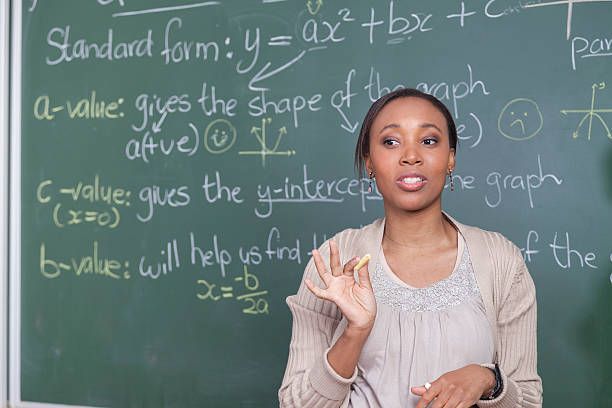 Standard form: y = ax² + bx + c
par
a-value: gives the shape of the graph
a(+ve)
c-value: gives the y-intercept the graph
(x=0)
b-value: will help us find of the
x = -b/2a